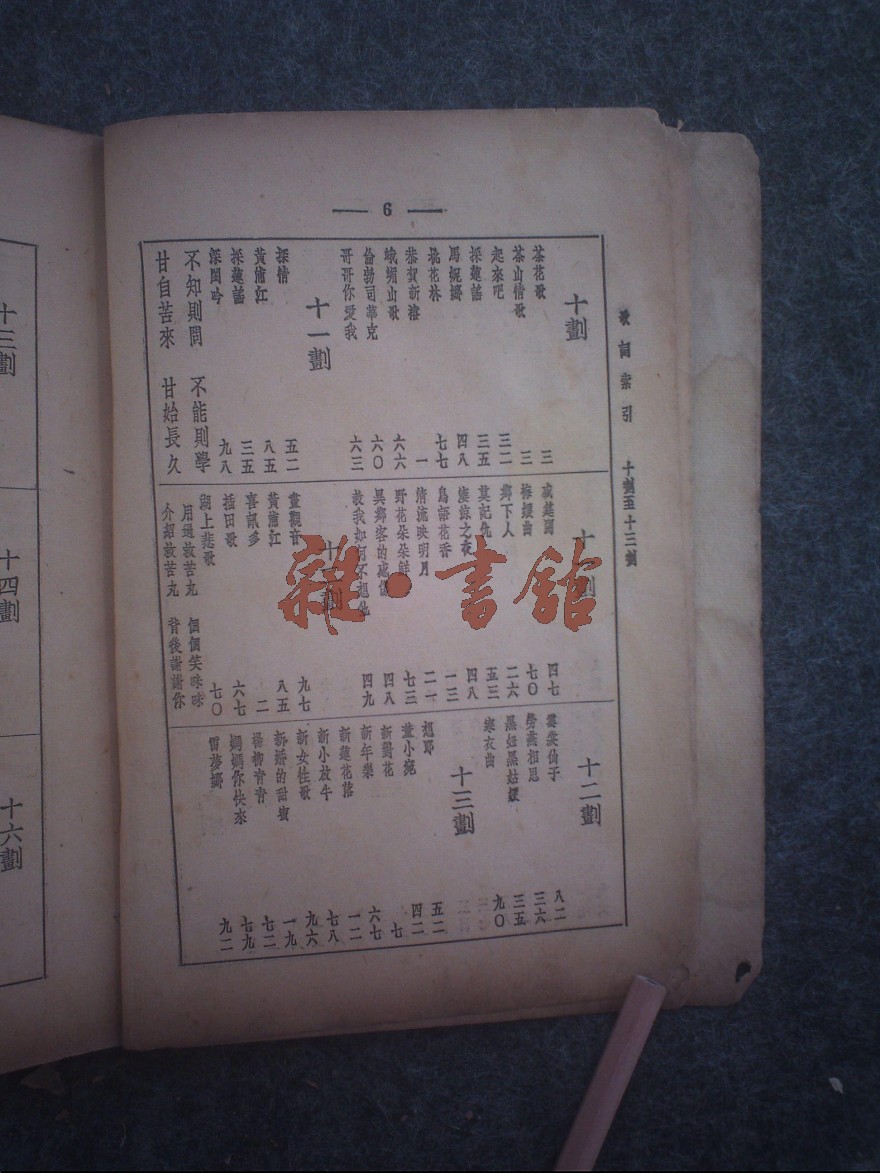 6
歌詞索引 十劃至十三劃
十劃
茶花歌 三
茶山情歌 三
起來吧 三二
採蓮謠 三五
馬婉娜 四八
桃花林 七七
恭賀新禧 一
峨嵋山歌 六六
倫勃司華克 六〇
哥哥你愛我 六三
十一劃
探情 五二
黃浦江 八五
採蓮謠 三五
深閨吟 九八
不知則問 不能則學
甘自苦來 甘始長久
十 劃
四七
七〇
鄉下人 二六
莫記仇 五三
之夜 四八
鳥語花香 一三
清流映明月 二一
野花朵朵鮮 七三
異鄉客的感傷 四八
教我如何不想他 四九
十 劃
畫觀音 九七
黃浦江 八五
喜訊多 二
插田歌 六七
湖上悲歌 七〇
用過救苦丸 個個笑咪咪
介紹救苦丸 背後謝謝你
十二劃
雲裳仙子 八二
勞燕相思 三六
黑妞黑姑娘 三五
寒衣曲 九〇
十三劃
想郎 五二
董小宛 四二
新對花 七
新年樂 六七
新蓮花落 一二
新小放牛 七八
新女性歌 九六
新婚的甜蜜 一九
楊柳青青 七二
媽媽你快來 七九
雷夢娜 九二
十三劃
十四劃
十六劃
雜·書館